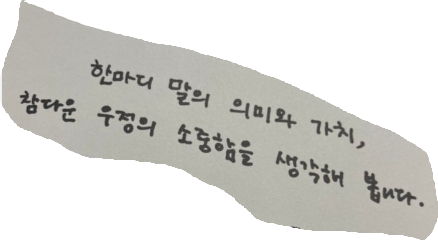 한마디 말의 의미와 가치,
참다운 우정의 소중함을 생각해 봅니다.